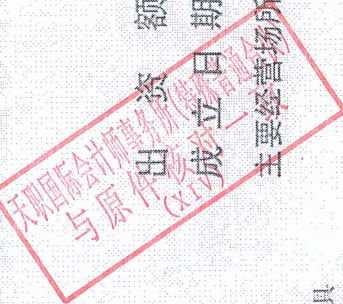 出资额
成立日期
主要经营场所
天职国际会计师事务所(特殊普通合伙)
与原件核对一致
(XIV)